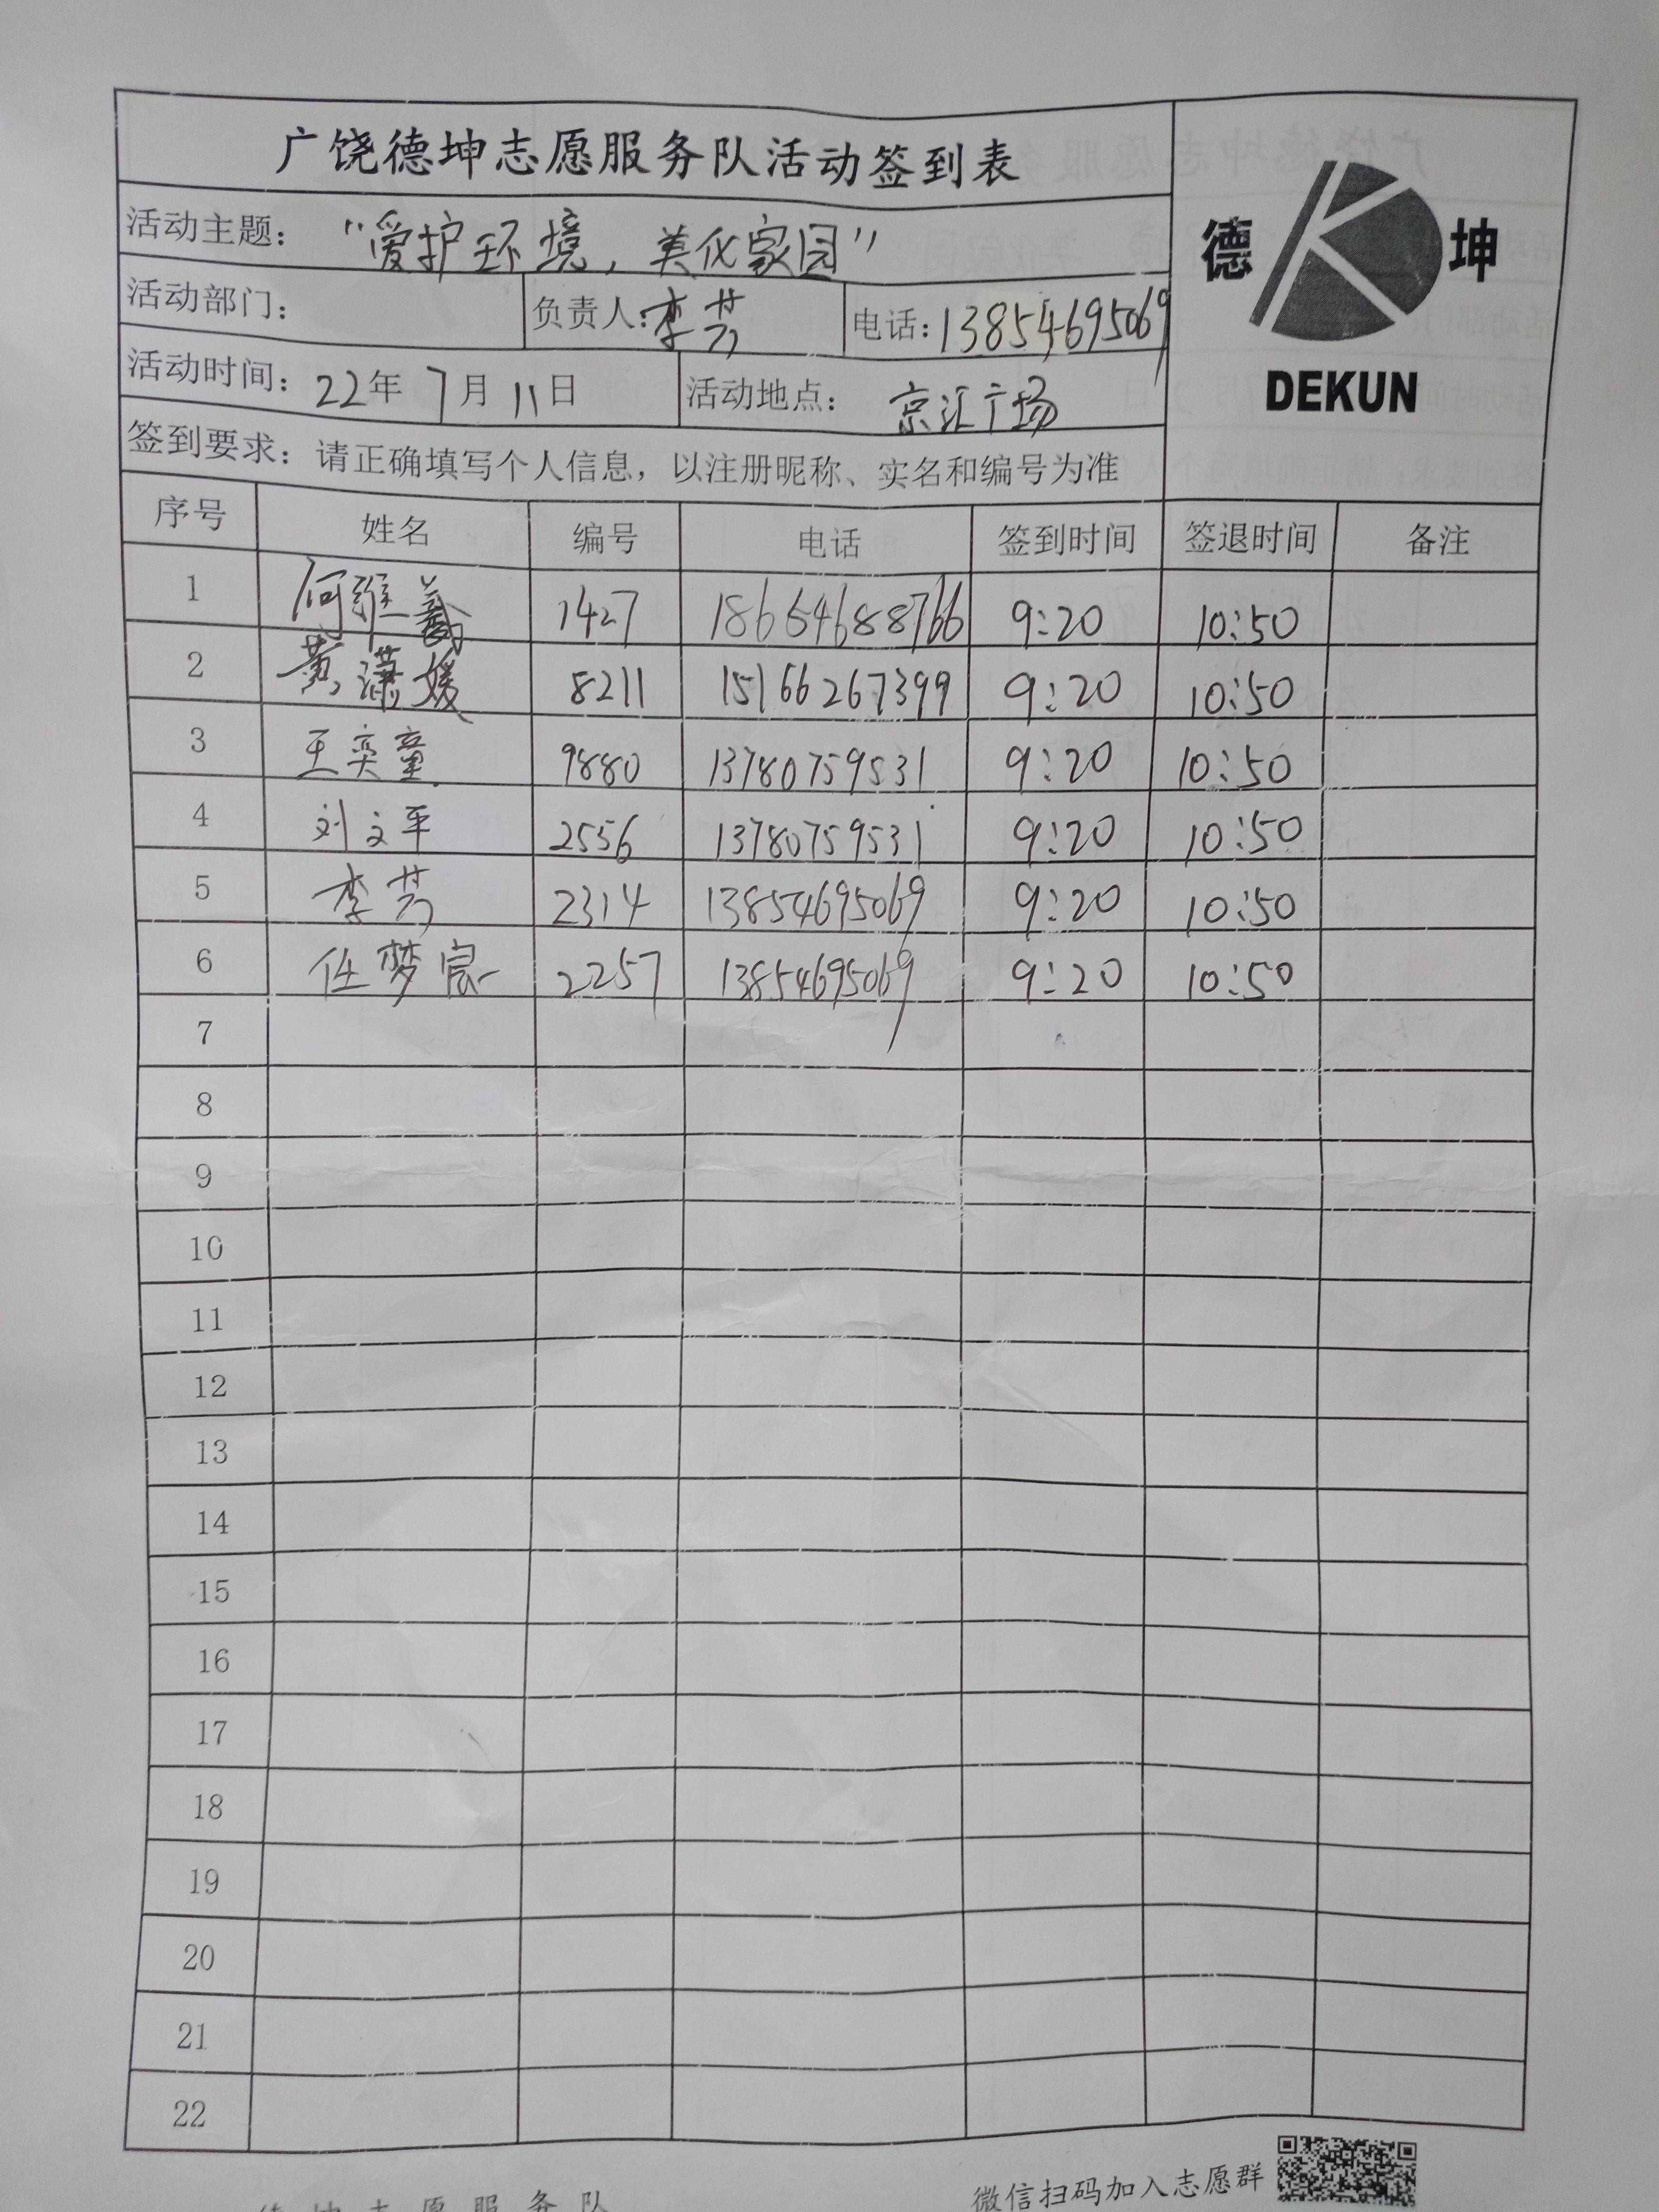 广饶德坤志愿服务队活动签到表
德 坤
DEKUN
活动主题： “爱护环境，美化家园”
活动部门： 负责人：李芳 电话：13854695069
活动时间：22年 7月 11日 活动地点： 京汇广场
签到要求：请正确填写个人信息，以注册昵称、实名和编号为准
序号 姓名 编号 电话 签到时间 签退时间 备注
1 何雅羲 1427 18654688766 9:20 10:50
2 黄潇媛 8211 15166267399 9:20 10:50
3 王奕童 9880 13780759531 9:20 10:50
4 刘文平 2556 13780759531 9:20 10:50
5 李芳 2314 13854695069 9:20 10:50
6 任梦宸 2257 13854695069 9:20 10:50
7
8
9
10
11
12
13
14
15
16
17
18
19
20
21
22
微信扫码加入志愿群
德坤志愿服务队